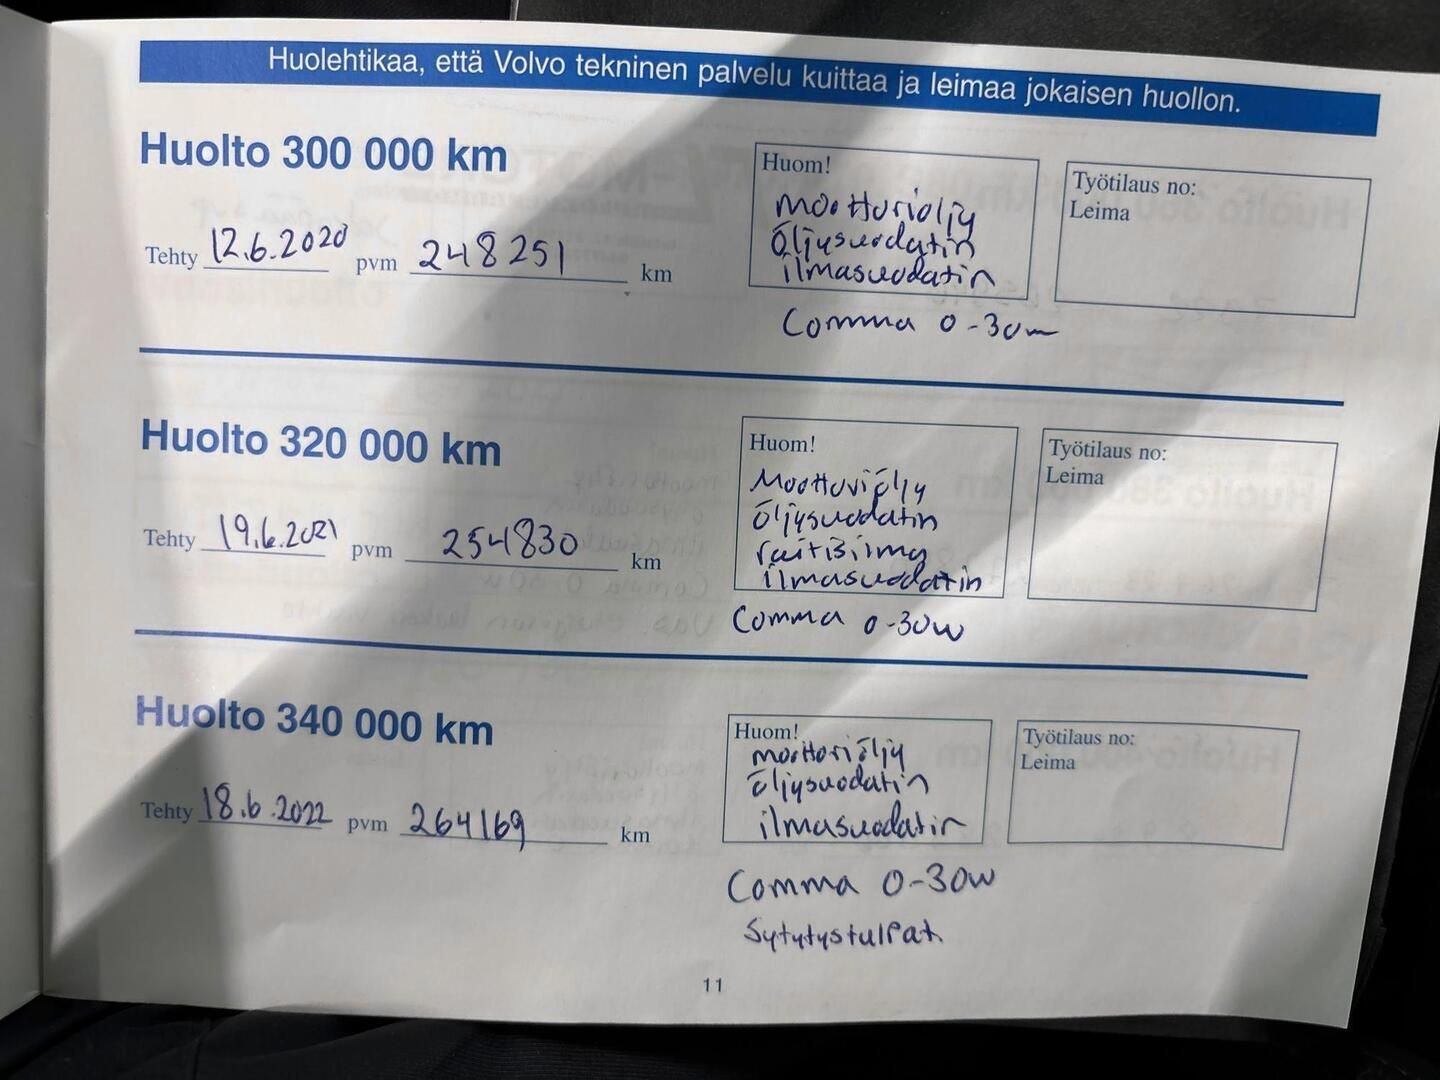 Huolehtikaa, että Volvo tekninen palvelu kuittaa ja leimaa jokaisen huollon.
Huolto 300 000 km
Tehty 12.6.2020 pvm 248251 km
Huom!
moottoriöljy
öljysuodatin
ilmasuodatin
Comma 0-30w
Työtilaus no:
Leima
Huolto 320 000 km
Tehty 19.6.2021 pvm 254830 km
Huom!
Moottoriöljy
öljysuodatin
raitisilma
ilmasuodatin
Comma 0-30w
Työtilaus no:
Leima
Huolto 340 000 km
Tehty 18.6.2022 pvm 264169 km
Huom!
moottoriöljy
öljysuodatin
ilmasuodatin
Comma 0-30w
Sytytystulpat
Työtilaus no:
Leima
11